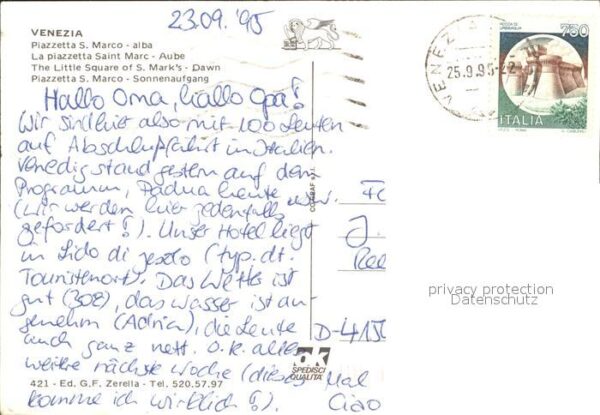 23.09.'95
VENEZIA
Piazzetta S. Marco - alba
La piazzetta Saint Marc - Aube
The Little Square of S. Mark's - Dawn
Piazzetta S. Marco - Sonnenaufgang
Hallo Oma, hallo Opa!
Wir sind hier also mit 100 Leuten
auf Abschlußfahrt in Italien.
Venedig stand gestern auf dem
Programm, Padua heute usw.
(wir werden hier jedenfalls
gefordert!). Unser Hotel liegt
in Lido di Jesolo (typ. dt.
Touristenort). Das Wetter ist
gut (30°), das Wasser ist an-
genehm (Adria), die Leute
auch ganz nett. O.k. alles
weitere nächste Woche (dieses Mal
komme ich wirklich!).
Ciao
J.
D-415
VENEZIA
25.9.95-22
ROCCA DI
URBISAGLIA
750
ITALIA
privacy protection
Datenschutz
ak
SPEDISCI
QUALITA'
421 - Ed. G.F. Zerella - Tel. 520.57.97